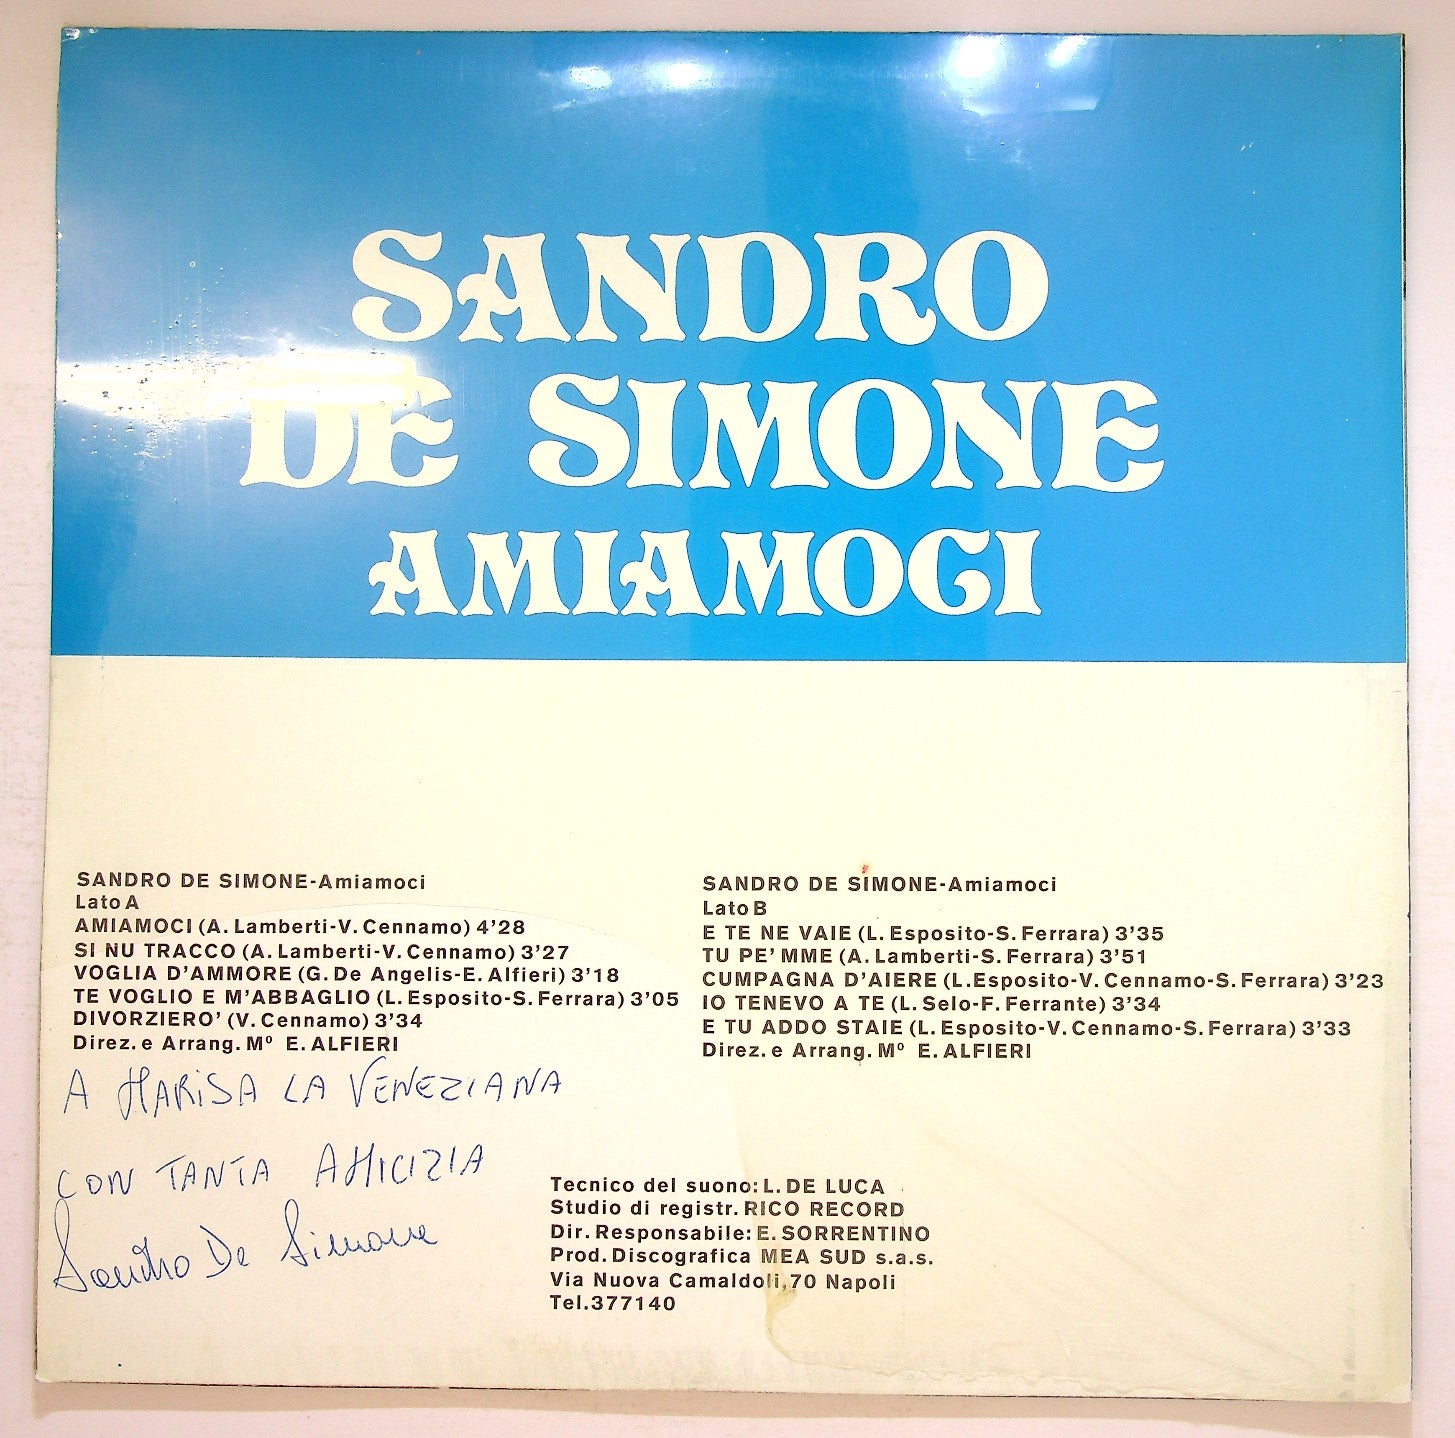 SANDRO
DE SIMONE
AMIAMOCI
SANDRO DE SIMONE-Amiamoci
Lato A
AMIAMOCI (A. Lamberti-V. Cennamo) 4'28
SI NU TRACCO (A. Lamberti-V. Cennamo) 3'27
VOGLIA D'AMMORE (G. De Angelis-E. Alfieri) 3'18
TE VOGLIO E M'ABBAGLIO (L. Esposito-S. Ferrara) 3'05
DIVORZIERO' (V. Cennamo) 3'34
Direz. e Arrang. Mº E. ALFIERI
SANDRO DE SIMONE-Amiamoci
Lato B
E TE NE VAIE (L. Esposito-S. Ferrara) 3'35
TU PE' MME (A. Lamberti-S. Ferrara) 3'51
CUMPAGNA D'AIERE (L. Esposito-V. Cennamo-S. Ferrara) 3'23
IO TENEVO A TE (L. Selo-F. Ferrante) 3'34
E TU ADDO STAIE (L. Esposito-V. Cennamo-S. Ferrara) 3'33
Direz. e Arrang. Mº E. ALFIERI
A MARISA LA VENEZIANA
CON TANTA AMICIZIA
Sandro De Simone
Tecnico del suono: L. DE LUCA
Studio di registr. RICO RECORD
Dir. Responsabile: E. SORRENTINO
Prod. Discografica MEA SUD s.a.s.
Via Nuova Camaldoli, 70 Napoli
Tel. 377140